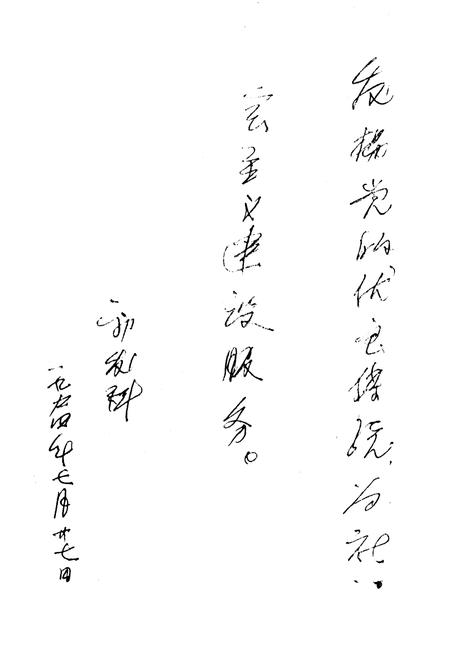 发揚党的优良傳統,为社
会主义建设服务。
一九六四年七月廿七日